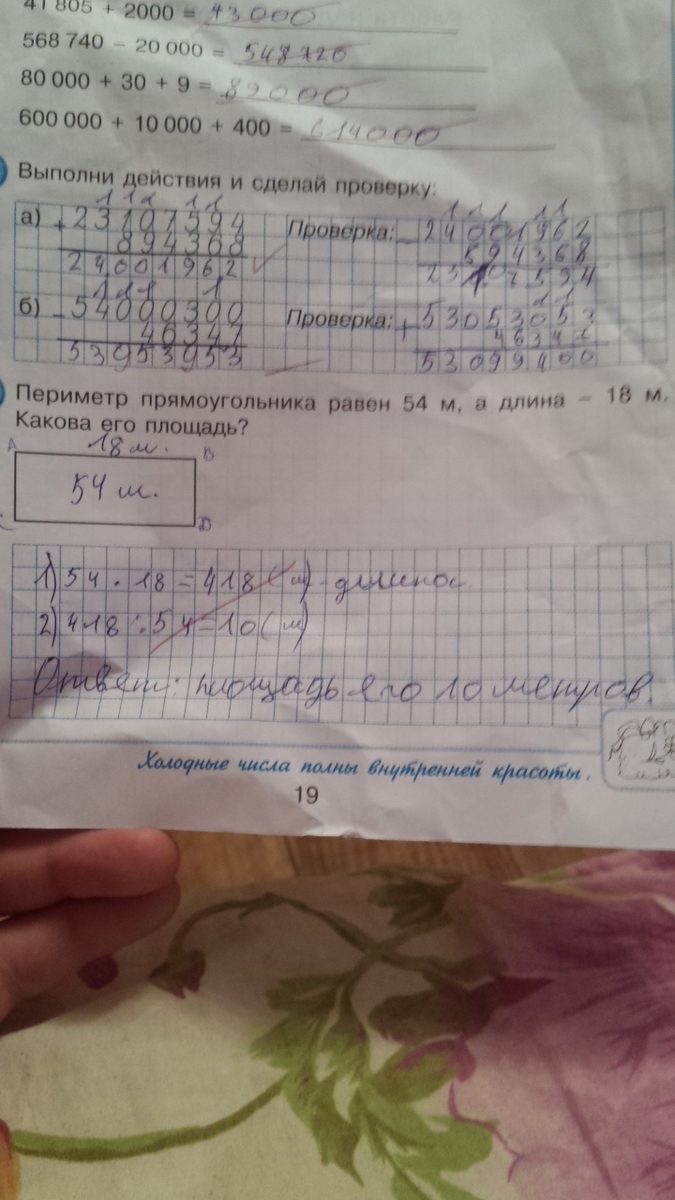 41 805 + 2000 = 43000
568 740 − 20 000 = 548720
80 000 + 30 + 9 = 89000
600 000 + 10 000 + 400 = 614000
Выполни действия и сделай проверку:
1 1 1 1 1
а) + 23107594
894368
24001962
Проверка:
1 1 1 1 1
− 24001962
894368
23107594
1 1 1 1
б) − 54000300
46347
53953953
Проверка:
1 1
+ 53053053
46347
53099400
Периметр прямоугольника равен 54 м, а длина – 18 м.
Какова его площадь?
18 м.
А В
54 м.
D
1) 54 · 18 = 418 (м) - длинос
2) 418 : 54 = 10 (м)
Ответ: площадь его 10 метров.
Холодные числа полны внутренней красоты.
19